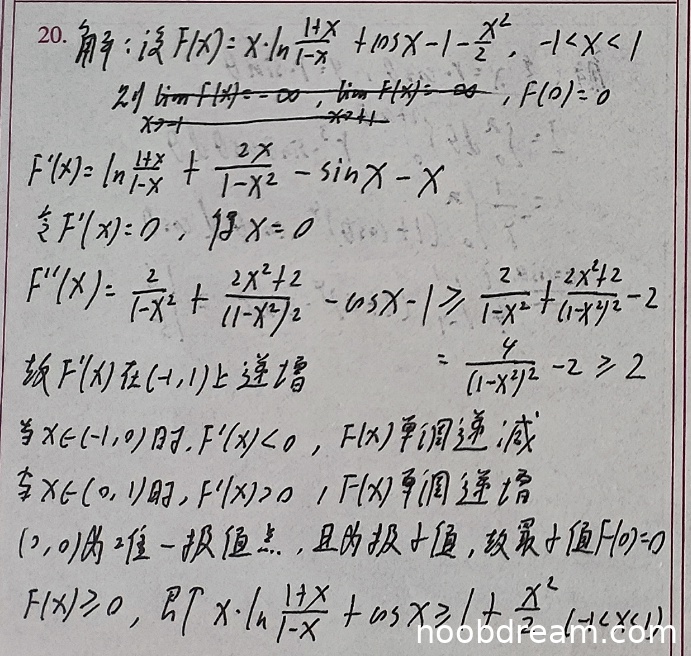 20. 解：设F(x)=x·ln (1+x)/(1-x) + cosx-1-x²/2, -1<x<1
则 lim_{x→-1} F(x)=-∞, lim_{x→+1} F(x)=∞, F(0)=0
F'(x)=ln (1+x)/(1-x) + 2x/(1-x²) - sinx - x
令F'(x)=0, 得x=0
F''(x)= 2/(1-x²) + (2x²+2)/(1-x²)² - cosx-1 ≥ 2/(1-x²) + (2x²+2)/(1-x²)² - 2
= 4/(1-x²)² - 2 ≥ 2
故F'(x)在(-1,1)上递增
当x∈(-1,0)时, F'(x)<0, F(x)单调递减
当x∈(0,1)时, F'(x)>0, F(x)单调递增
(0,0)为唯一极值点, 且为极小值, 故最小值F(0)=0
F(x)≥0, 即 x·ln (1+x)/(1-x) + cosx ≥ 1 + x²/2 (-1<x<1)
noobdream.com